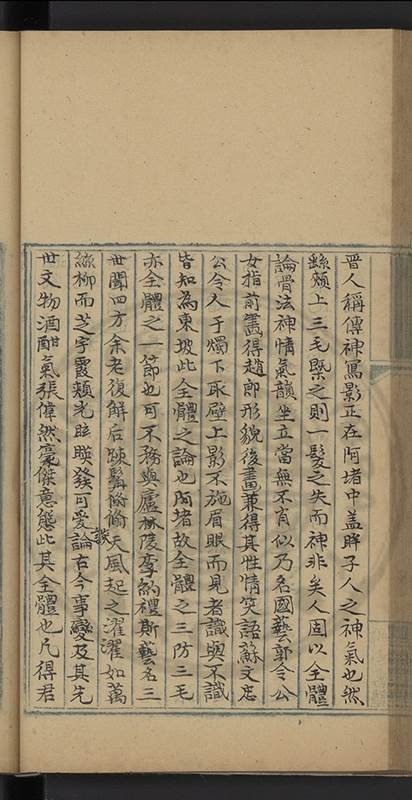 晋人稱傳神寫影正在阿堵中盖眸子人之神氣也然
繇頰上三毛槩之則一髮之失而神非矣人固以全體
論骨法神情氣韻坐立當無不肖似乃名國藝郭令公
女指前畫得趙郎形貌後畫兼得其性情笑語蘇文忠
公令人于燭下取壁上影不施眉眼而見者識與不識
皆知為東坡此全體之論也阿堵故全體之三防三毛
亦全體之一節也可不務與廬林陵李約禮斯藝名三
世聞四方余老復解后 鬅脩脩天風起之濯濯如萬
絲柳而芝宇霞頰光眩 發可愛談論古今事變及其先
世文物酒酣氣張偉然豪傑意態此其全體也凡得君